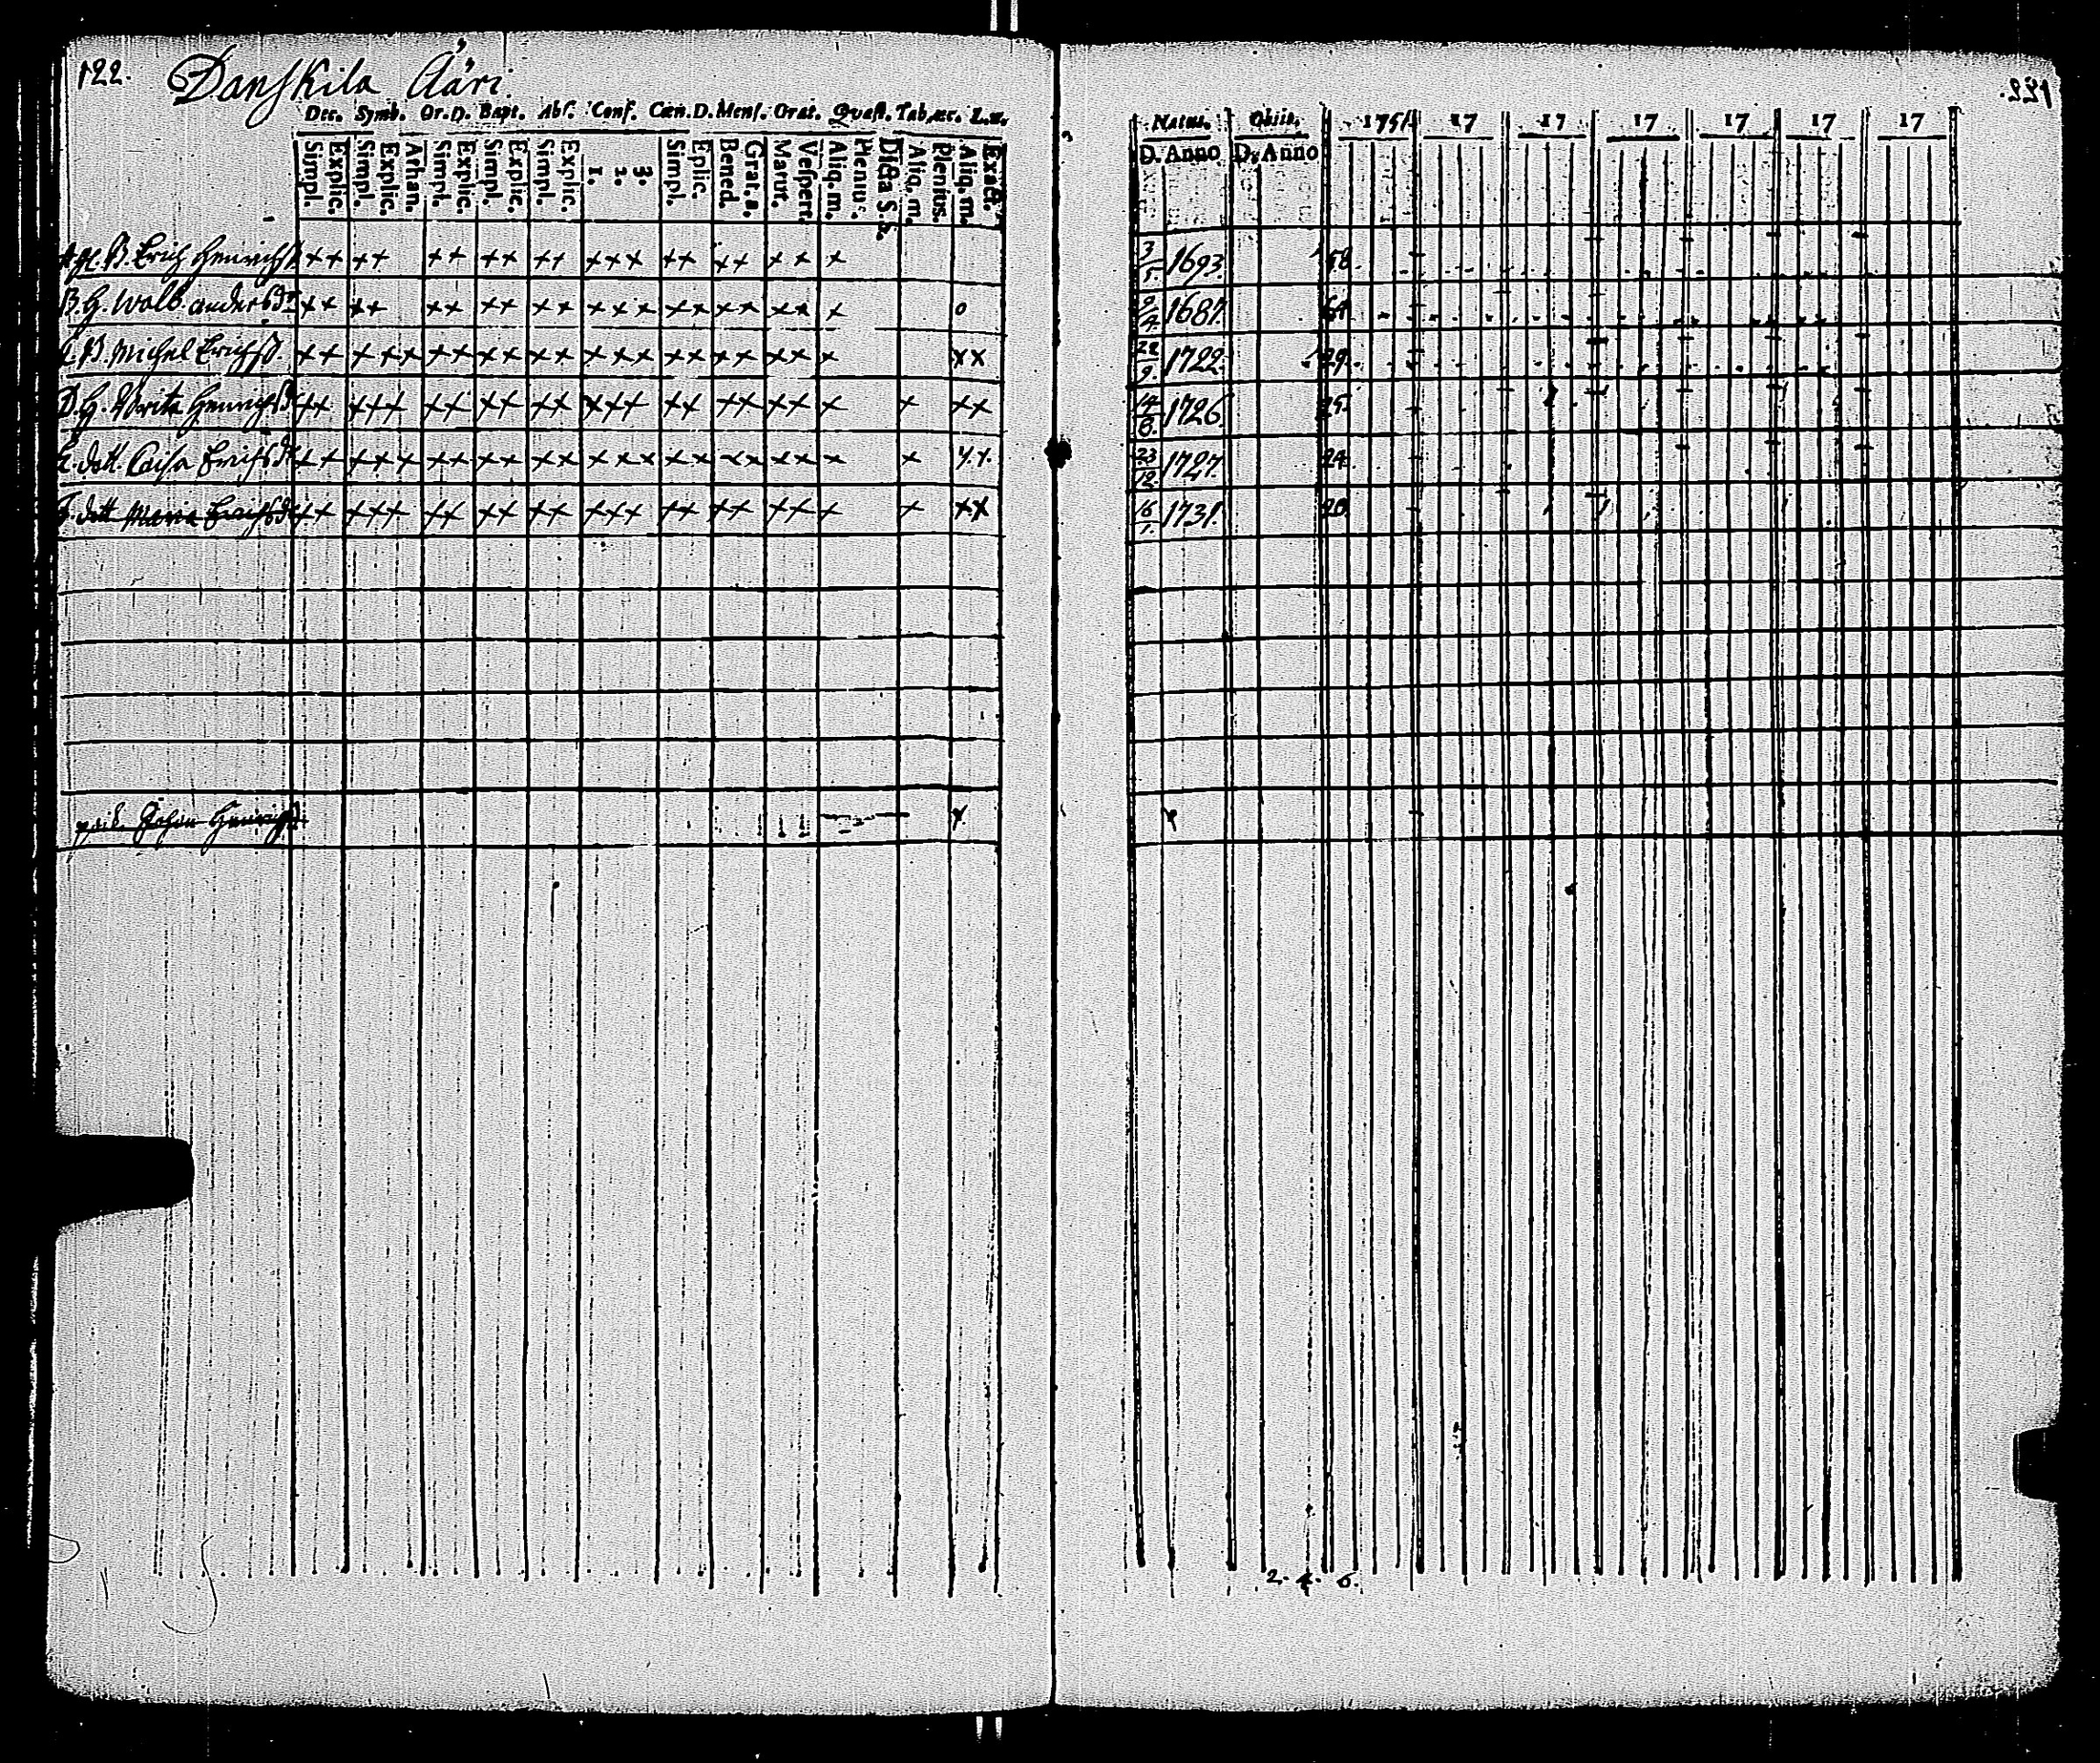 122. Danskila Ääri.
Dec. Symb. Or.D. Bapt. Abs. Conf. Cœn.D. Mens. Orat. Quæst. Tab.œc. L.n.
Simpl. Explic. Simpl. Explic. Athan. Simpl. Explic. Simpl. Explic. Simpl. Explic. 1. 2. 3. Simpl. Eplic. Bened. Grat. a. Matut. Vespert. Aliq. m. Plenius. Dicta S.S. Aliq. m. Plenius. Aliq. m. Exact.
A. B. Erich Henrichss. ++ ++ ++ ++ ++ +++ ++ ++ ++ +
B. H. Walb. andersdr ++ ++ ++ ++ ++ +++ ++ ++ ++ + o
C. B. Michel Erichss. ++ +++ ++ ++ ++ +++ ++ ++ ++ + ××
D. H. Brita Henrichsdr ++ +++ ++ ++ ++ +++ ++ ++ ++ + + ××
E. dott. Caisa Erichsdr ++ +++ ++ ++ ++ +++ ++ ++ ++ + + ××
F. dott Maria Erichsdr ++ +++ ++ ++ ++ +++ ++ ++ ++ + + ××
Johan Henrichss.
122.
Natus. Obiit. 1751 17 17 17 17 17 17
D. Anno D. Anno
3/5. 1693. 58.
1687. 64
1722. 29.
14/8. 1726. 25.
23/12. 1727. 24.
16/7. 1731. 20.
2. 4. 6.